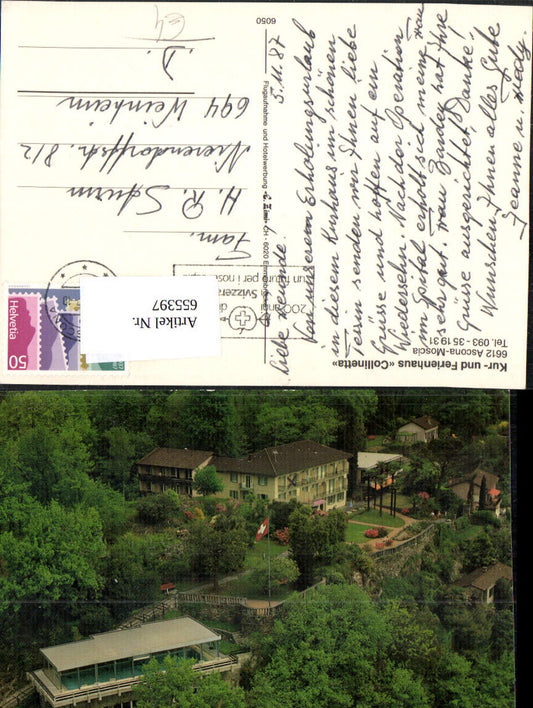 Kur- und Ferienhaus «Collinetta»
6612 Ascona-Moscia
Tel. 093 - 35 19 31
5.11.87
Liebe Freunde.
Von unserem Erholungsurlaub
in diesem Kurhaus im schönen
Tessin senden wir Ihnen liebe
Grüsse und hoffen auf ein
Wiedersehn. Nach der Operation
im Spital erholt sich meine Frau
sehr gut. Frau Binder hat Ihre
Grüsse ausgerichtet. Danke,
Wünschen Ihnen alles Gute
Jeanne u.
Flugaufnahme und Hotelwerbung
6020 Emmenbrücke
6050
200 anni
Svizzera
un futuro per i nostri
Helvetia
50
Artikel Nr.
655397
Fam.
H. R. Sturm
Nierendorffstr. 8/2
694 Weinheim
D.